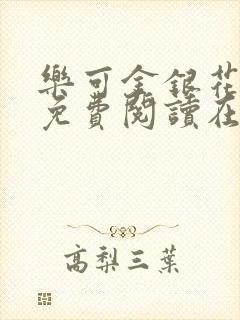 樂可金銀花
免費閱讀在
高梨三葉